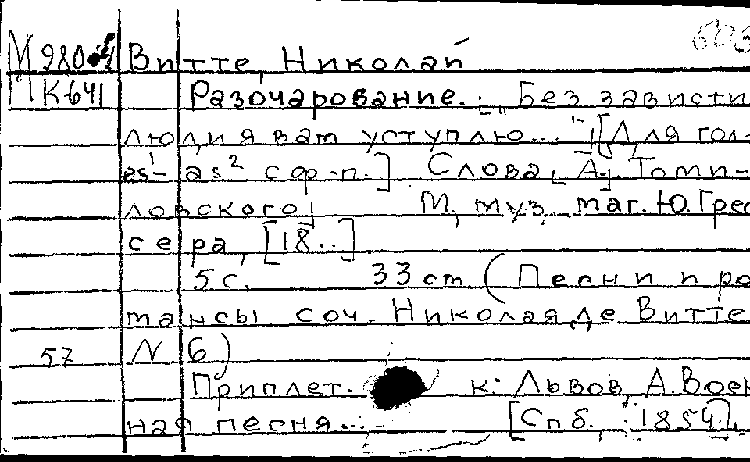 М 980-4 Витте, Николай
МК641 Разочарование. "Без зависти
людия вам уступлю..." [Для гол.
es¹-as² с ф-п.] Слова [А.] Томи-
ловского М., муз. маг. Ю. Грес-
сера, [18..]
5 с. 33 cm (Песни и ро
мансы соч. Николая де Витте
57 N 6)
Приплет. к: Львов, А. Воен
ная песня... [Спб., 1854].